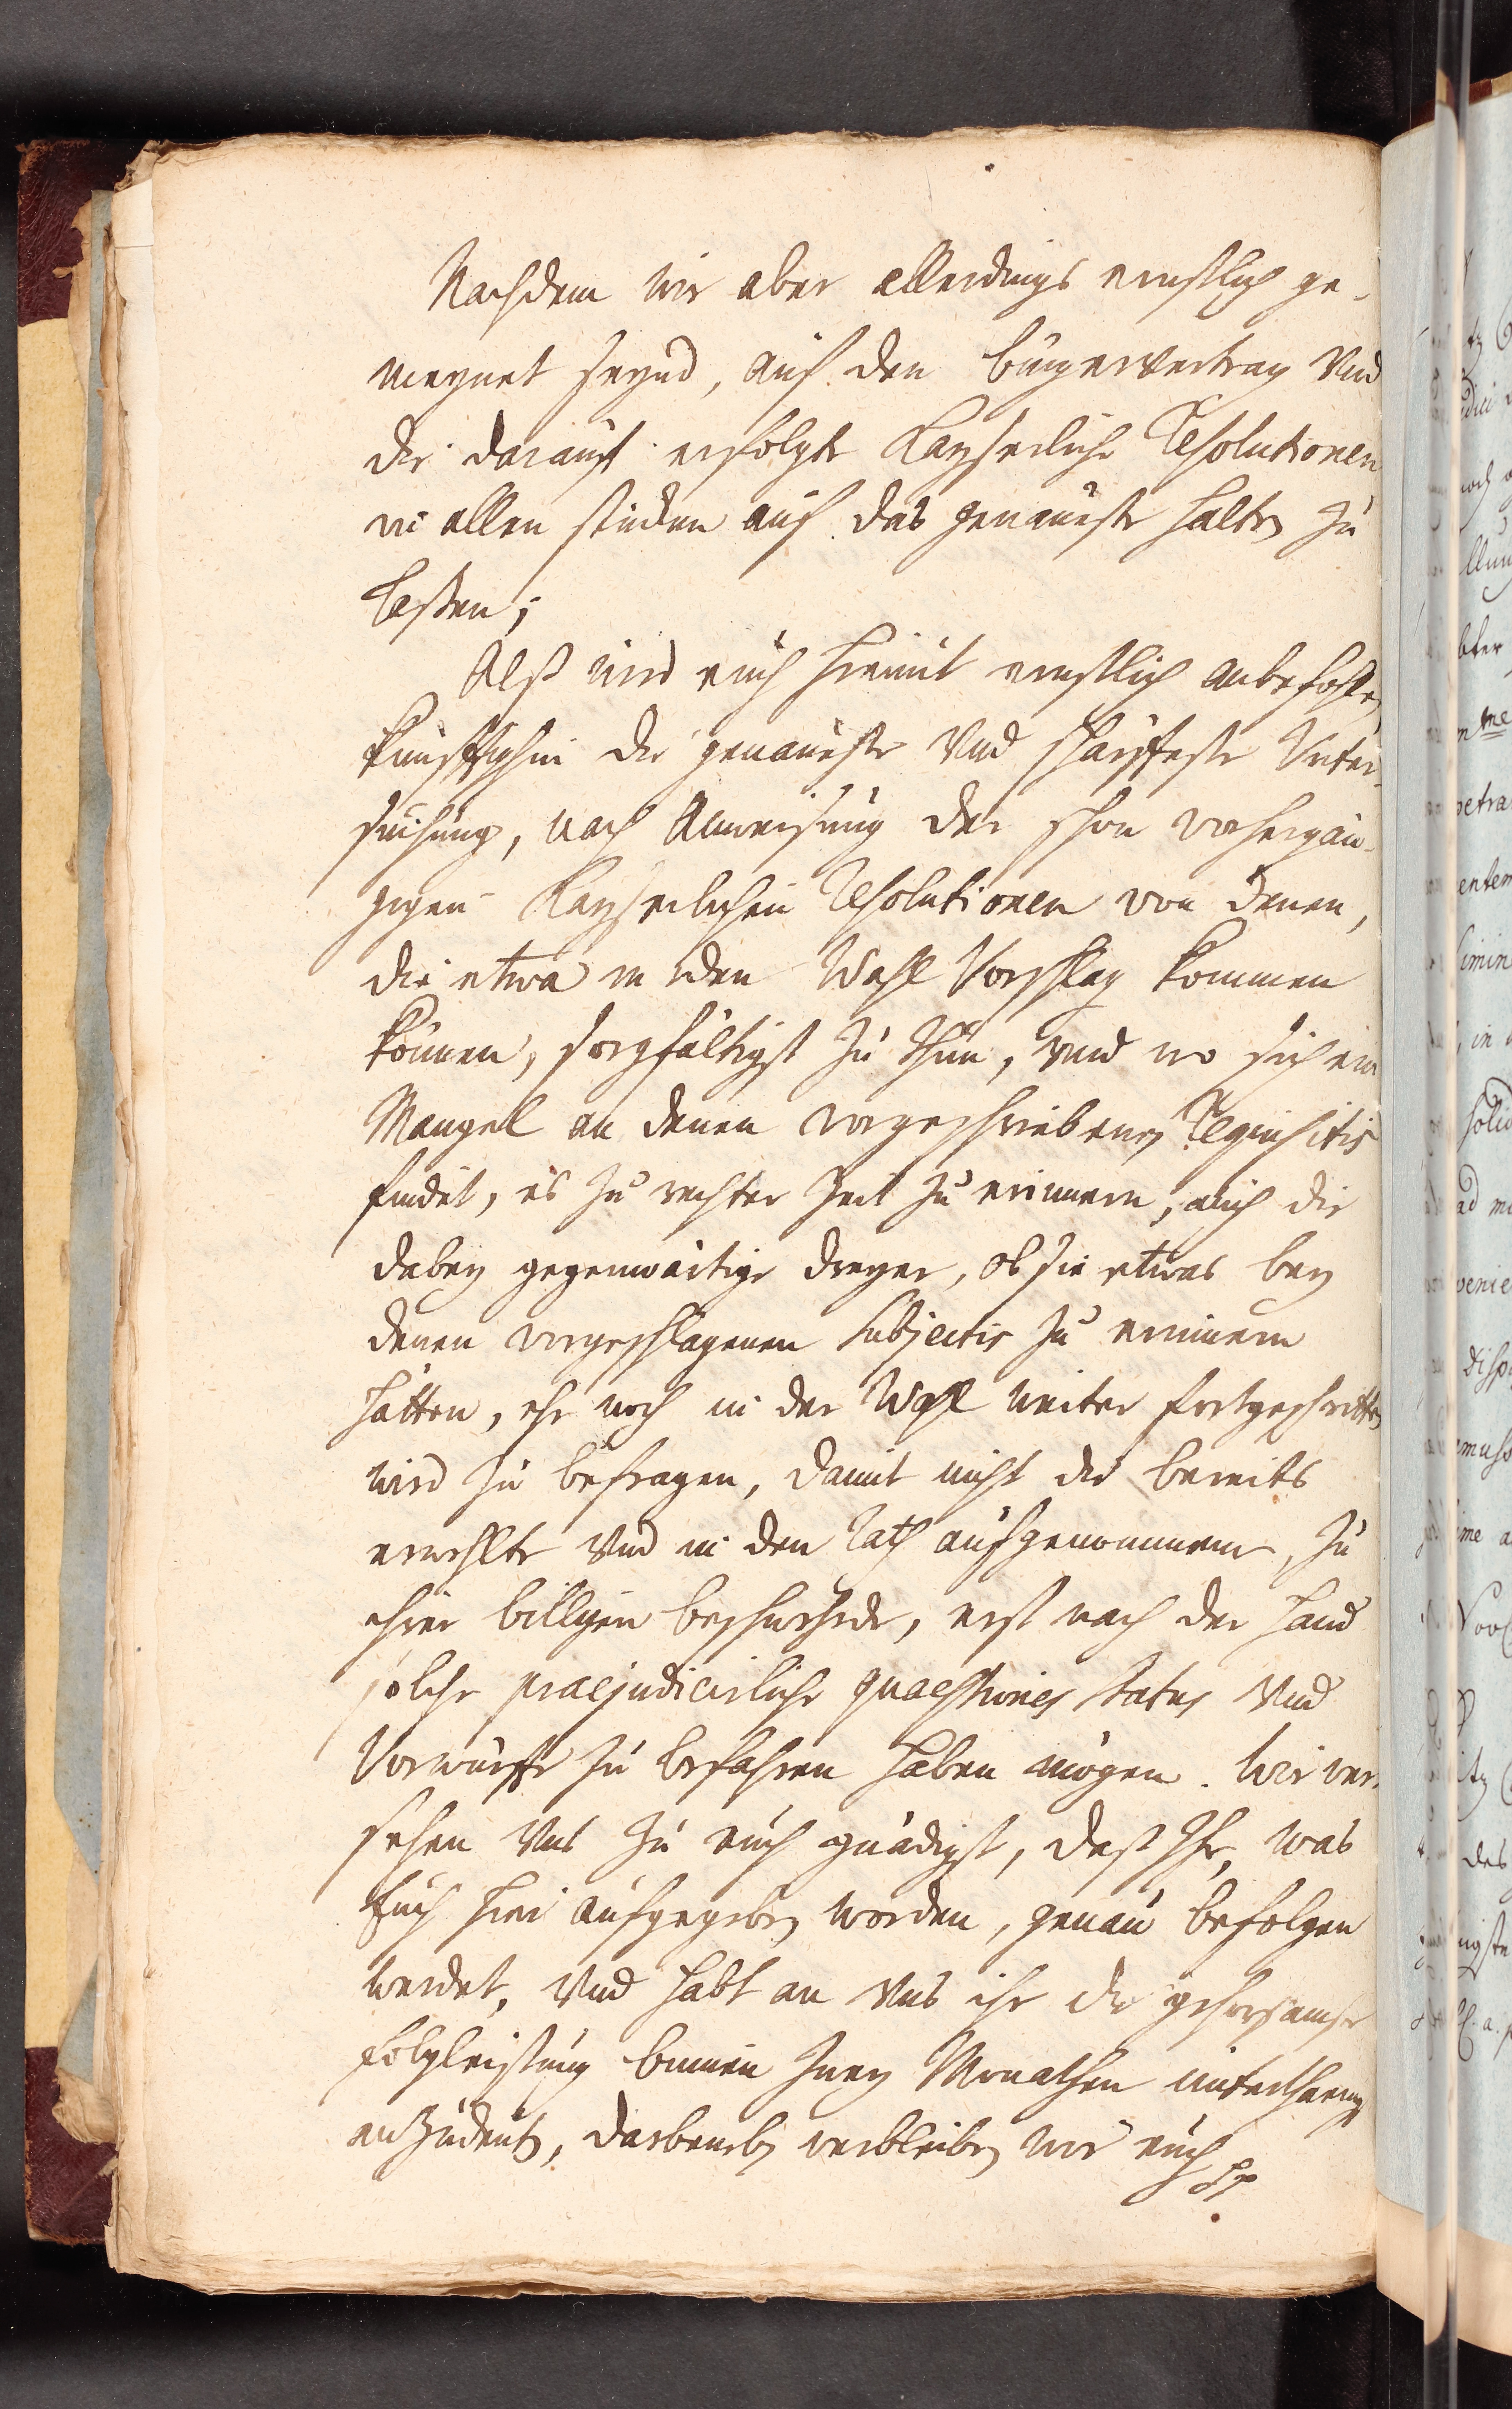 Nachdem wir aber allerdings ernstlich ge-
meynet seynd, auf den bürgervertrag Vnd
die darauf erfolgte Kayserliche Resolutionen
in allen stücken auf das genaueste halten zu
laßen;
Alß wird euch hiemit ernstlich anbefohlen
künfftighin die genaueste Vnd schärffeste Unter-
suchung, nach Anweisung der schon vorhergän-
gigen Kayserlichen Resolutionen von denen,
die etwa in den Wahl Vorschlag kommen
können, sorgfältigst zu thun, vnd wo sich ein
Mangel an denen vorgeschriebenen Requisitis
findet, es zu rechter Zeit zu erinnern, auch die
dabey gegenwärtige Neuner, ob sie etwas bey
denen vorgeschlagenen Subjectis zu erinnern
hätten, ehe noch in der Wahl weiter fortgeschritten
wird zu befragen, damit nicht die bereits
erwehlte Vnd in den Rath aufgenommene, zu
ihrer billigen beschwehrde, erst nach der Hand
solche praejudicirliche quaestiones status Vnd
Vorwürffe zu befahren haben mögen. Wir ver-
sehen Vns zu euch gnädigst, daß Ihr, was
Euch hier aufgegeben worden, genau befolgen
werdet, Vnd habt an Vns ihr die gehorsamste
folgleistung binnen Zwey Monathen unterthänigst
anzudeuten, darbeneben verbleiben wir euch pp